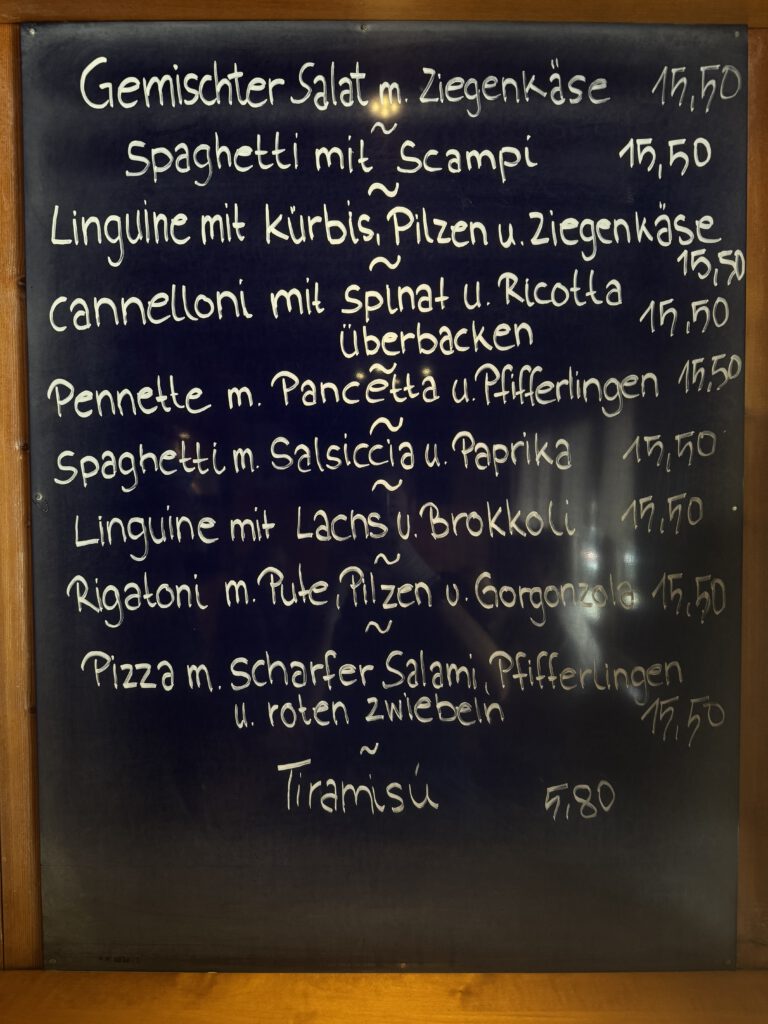 Gemischter Salat m. Ziegenkäse 15,50
~
Spaghetti mit Scampi 15,50
~
Linguine mit Kürbis, Pilzen u. Ziegenkäse
15,50
~
Cannelloni mit Spinat u. Ricotta
überbacken 15,50
~
Pennette m. Pancetta u. Pfifferlingen 15,50
~
Spaghetti m. Salsiccia u. Paprika 15,50
~
Linguine mit Lachs u. Brokkoli 15,50
~
Rigatoni m. Pute, Pilzen u. Gorgonzola 15,50
~
Pizza m. scharfer Salami, Pfifferlingen
u. roten Zwiebeln 15,50
~
Tiramisú 5,80